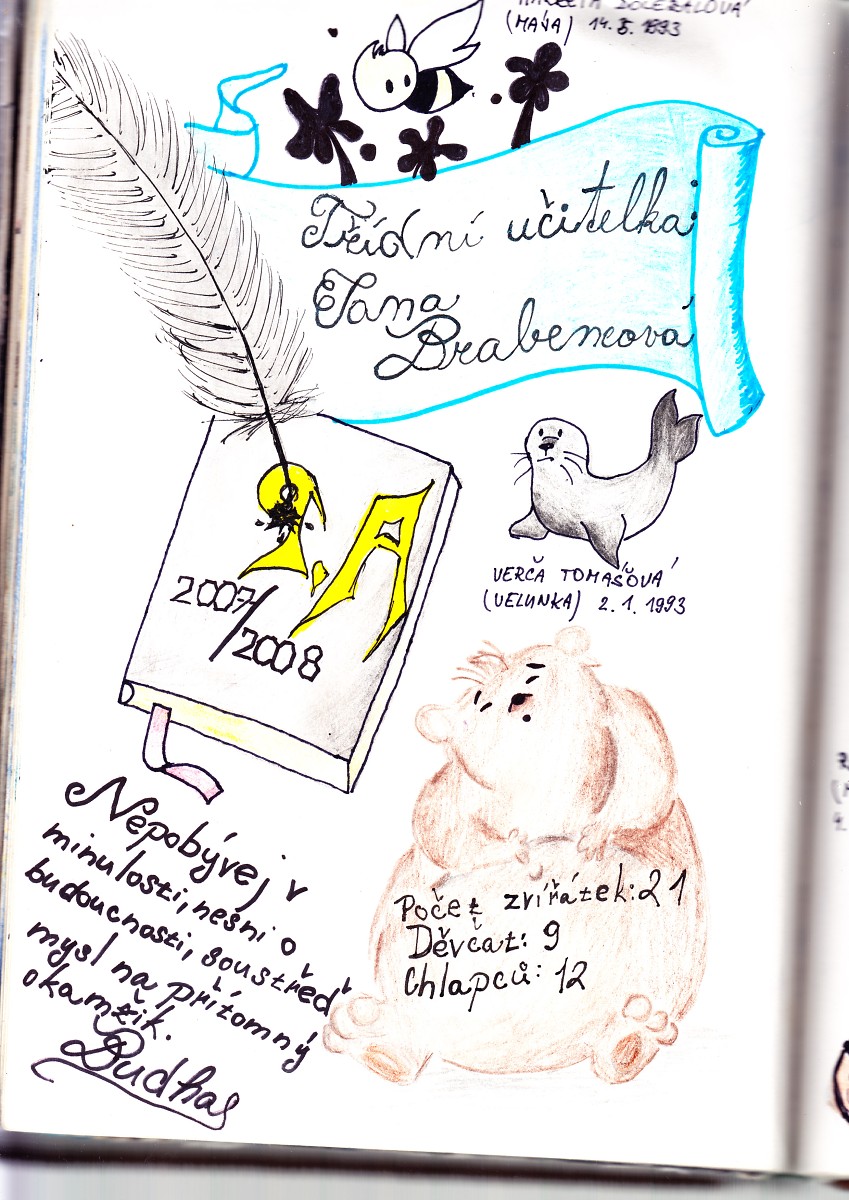 DOLEŽALOVÁ
(MÁJA) 14.5.1993
Třídní učitelka:
Jana
Brabencová
2.A
2007/2008
VERČA TOMAŠOVÁ
(VELUNKA) 2.1.1993
Nepobývej v
minulosti, nesni o
budoucnosti, soustřeď
mysl na přítomný
okamžik.
Budha
Počet zvířátek: 21
Děvčat: 9
Chlapců: 12